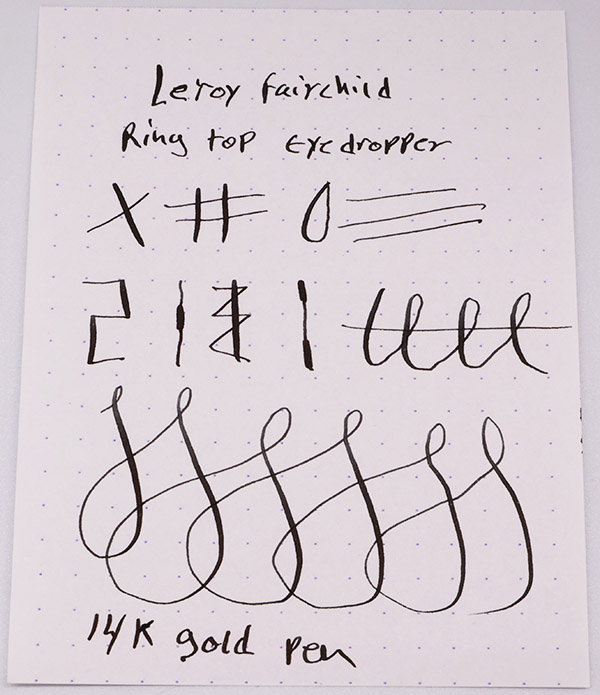 Leroy fairchild
Ring top Eyedropper
14K gold pen